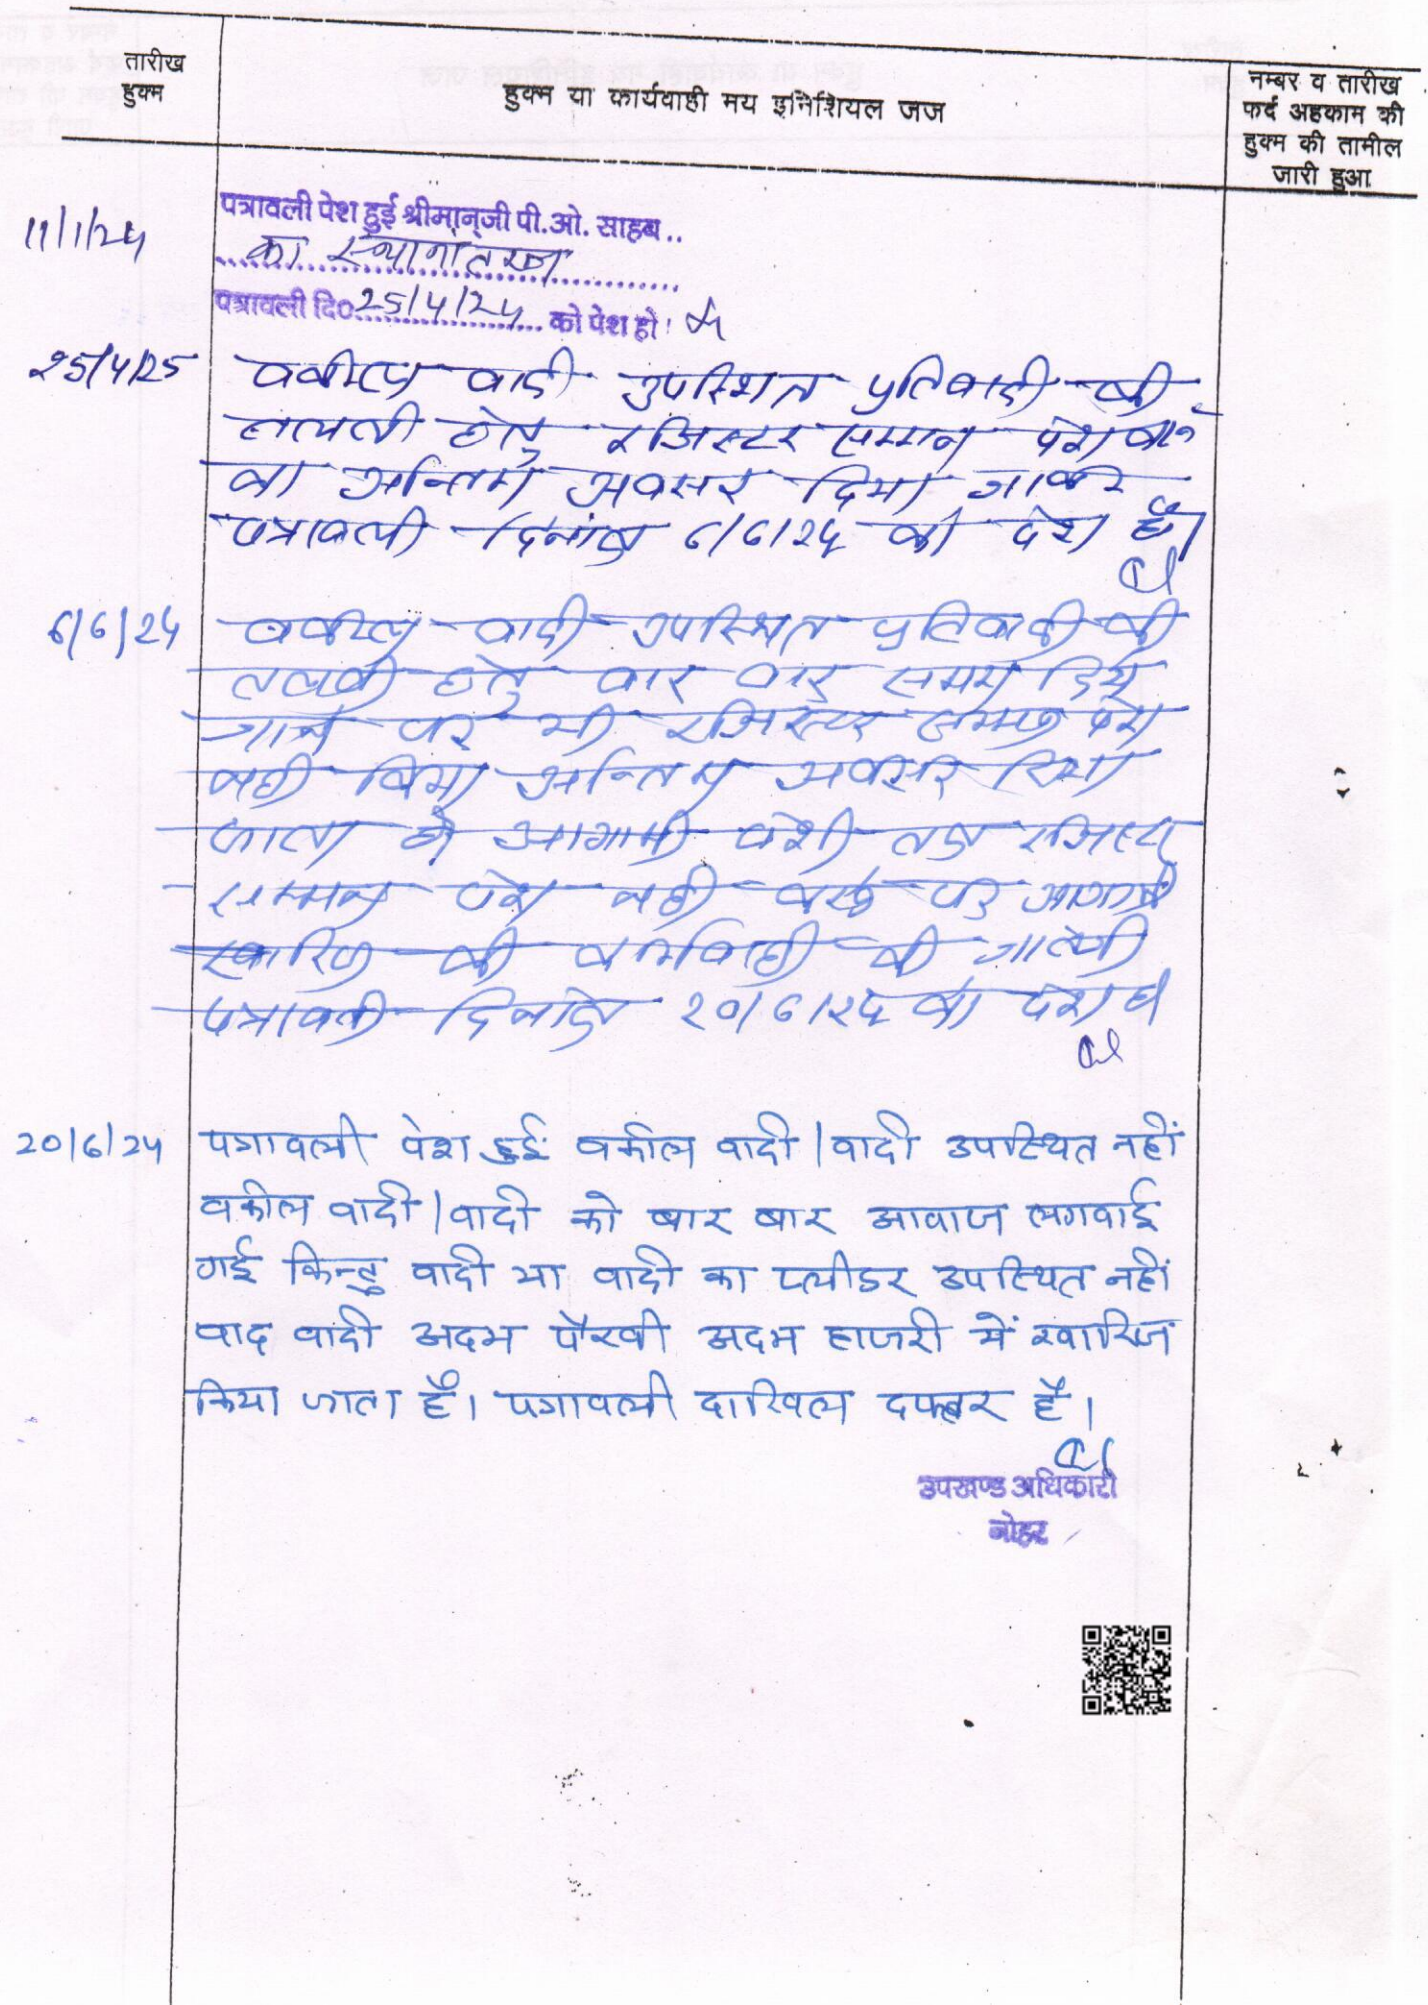 तारीख
हुक्म
हुक्म या कार्यवाही मय इनिशियल जज
नम्बर व तारीख
फर्द अहकाम की
हुक्म की तामील
जारी हुआ
11/1/24
पत्रावली पेश हुई श्रीमान्जी पी.ओ. साहब..
का स्थानांतरण
पत्रावली दि० 25/4/24 को पेश हो।
25/4/25
वकील वादी उपस्थित प्रतिवादी की
तलबी हेतु रजिस्टर सम्मन पेश करने
का अन्तिम अवसर दिया जाकर
पत्रावली दिनांक 6/6/24 को पेश हो।
6/6/24
वकील वादी उपस्थित प्रतिवादी की
तलबी हेतु बार बार समय दिये
जाने पर भी रजिस्टर सम्मन पेश
नही किया अन्तिम अवसर दिया
जाता है आगामी पेशी तक रजिस्टर
सम्मन पेश नही करने पर
खारिज की कार्यवाही की जायेगी
पत्रावली दिनांक 20/6/24 को पेश हो
20/6/24
पत्रावली पेश हुई वकील वादी/वादी उपस्थित नहीं
वकील वादी/वादी को बार बार आवाज लगवाई
गई किन्तु वादी या वादी का प्लीडर उपस्थित नहीं
वाद वादी अदम पैरवी अदम हाजरी में खारिज
किया जाता है। पत्रावली दाखिल दफ्तर है।
उपखण्ड अधिकारी
नोहर